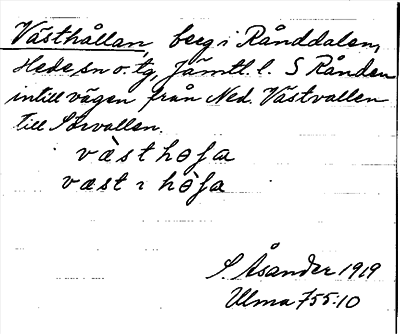 Västhållan, berg i Rånddalen,
Hede sn o. tg, Jämtl. l. S Rånden
intill vägen från Ned. Västvallen
till Sörvallen.
västhøſa
væst ı høſa
S. Åsander 1919
Ulma 755:10